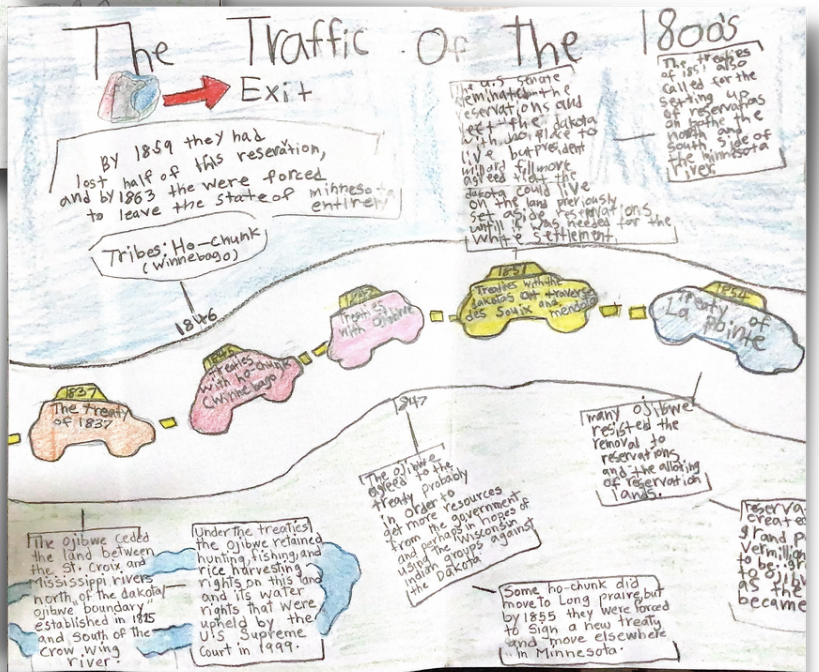 The Traffic Of the 1800s
Exit
By 1859 they had
lost half of this resevation,
and by 1863 the were forced
to leave the state of minnesota
entirely
Tribes: Ho-chunk
(winnebago)
1846
The U.S Senate
reservations and
left the dakota
with no place to
live but president
millard fillmore
agreed that the
dakota could live
on the land previously
set aside reservations,
untill it was needed for the
white settlement.
The treaties
of 1851 also
called for the
setting up
of reservations
on bothe the
north and
south, side of
the minnesota
river.
1837
The treaty
of 1837
treaties
with ho-chunk
(winnebago
Treaties
with Ojibwe
1851
Treaties with the
dakotas at traverse
des Souix and
mendota
1854
Treaty of
La pointe
1847
The Ojibwe
agreed to the
treaty probably
in order to
get more resources
from the government
and perhaps in hopes of
using the Wisconsin
indian groups against
the Dakota
many ojibwe
resisted the
removal to
reservations
and the alloting
of reservation
lands.
The ojibwe ceded
the land between
the St. Croix and
Mississippi rivers
north of the dakota/
ojibwe boundary
established in 1825
and south of the
Crow wing
river.
Under the treaties
the Ojibwe retained
hunting, fishing, and
rice harvesting
rights on this land
and its water
rights that were
upheld by the
U.S Supreme
Court in 1999.
Some ho-chunk did
move to Long praire, but
by 1855 they were forced
to sign a new treaty
and move elsewhere
in Minnesota.
reserva
create
grand p
vermilli
to be gr
to ojibw
as the
became